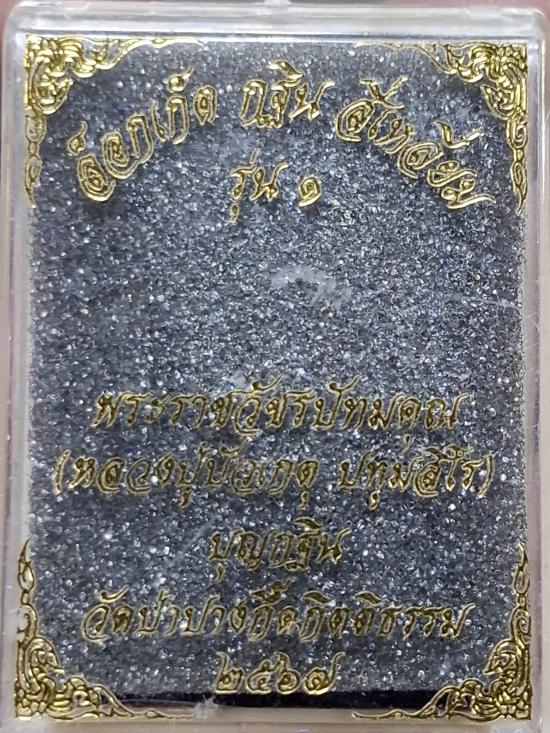 ล็อกเก็ต กฐิน สี่เหลี่ยม
รุ่น ๑
พระราชวัชรปัทมคุณ
(หลวงปู่บัวเกตุ ปทุมสิโร)
บุญกฐิน
วัดป่าปางกึ๊ดกิตติธรรม
๒๕๖๗